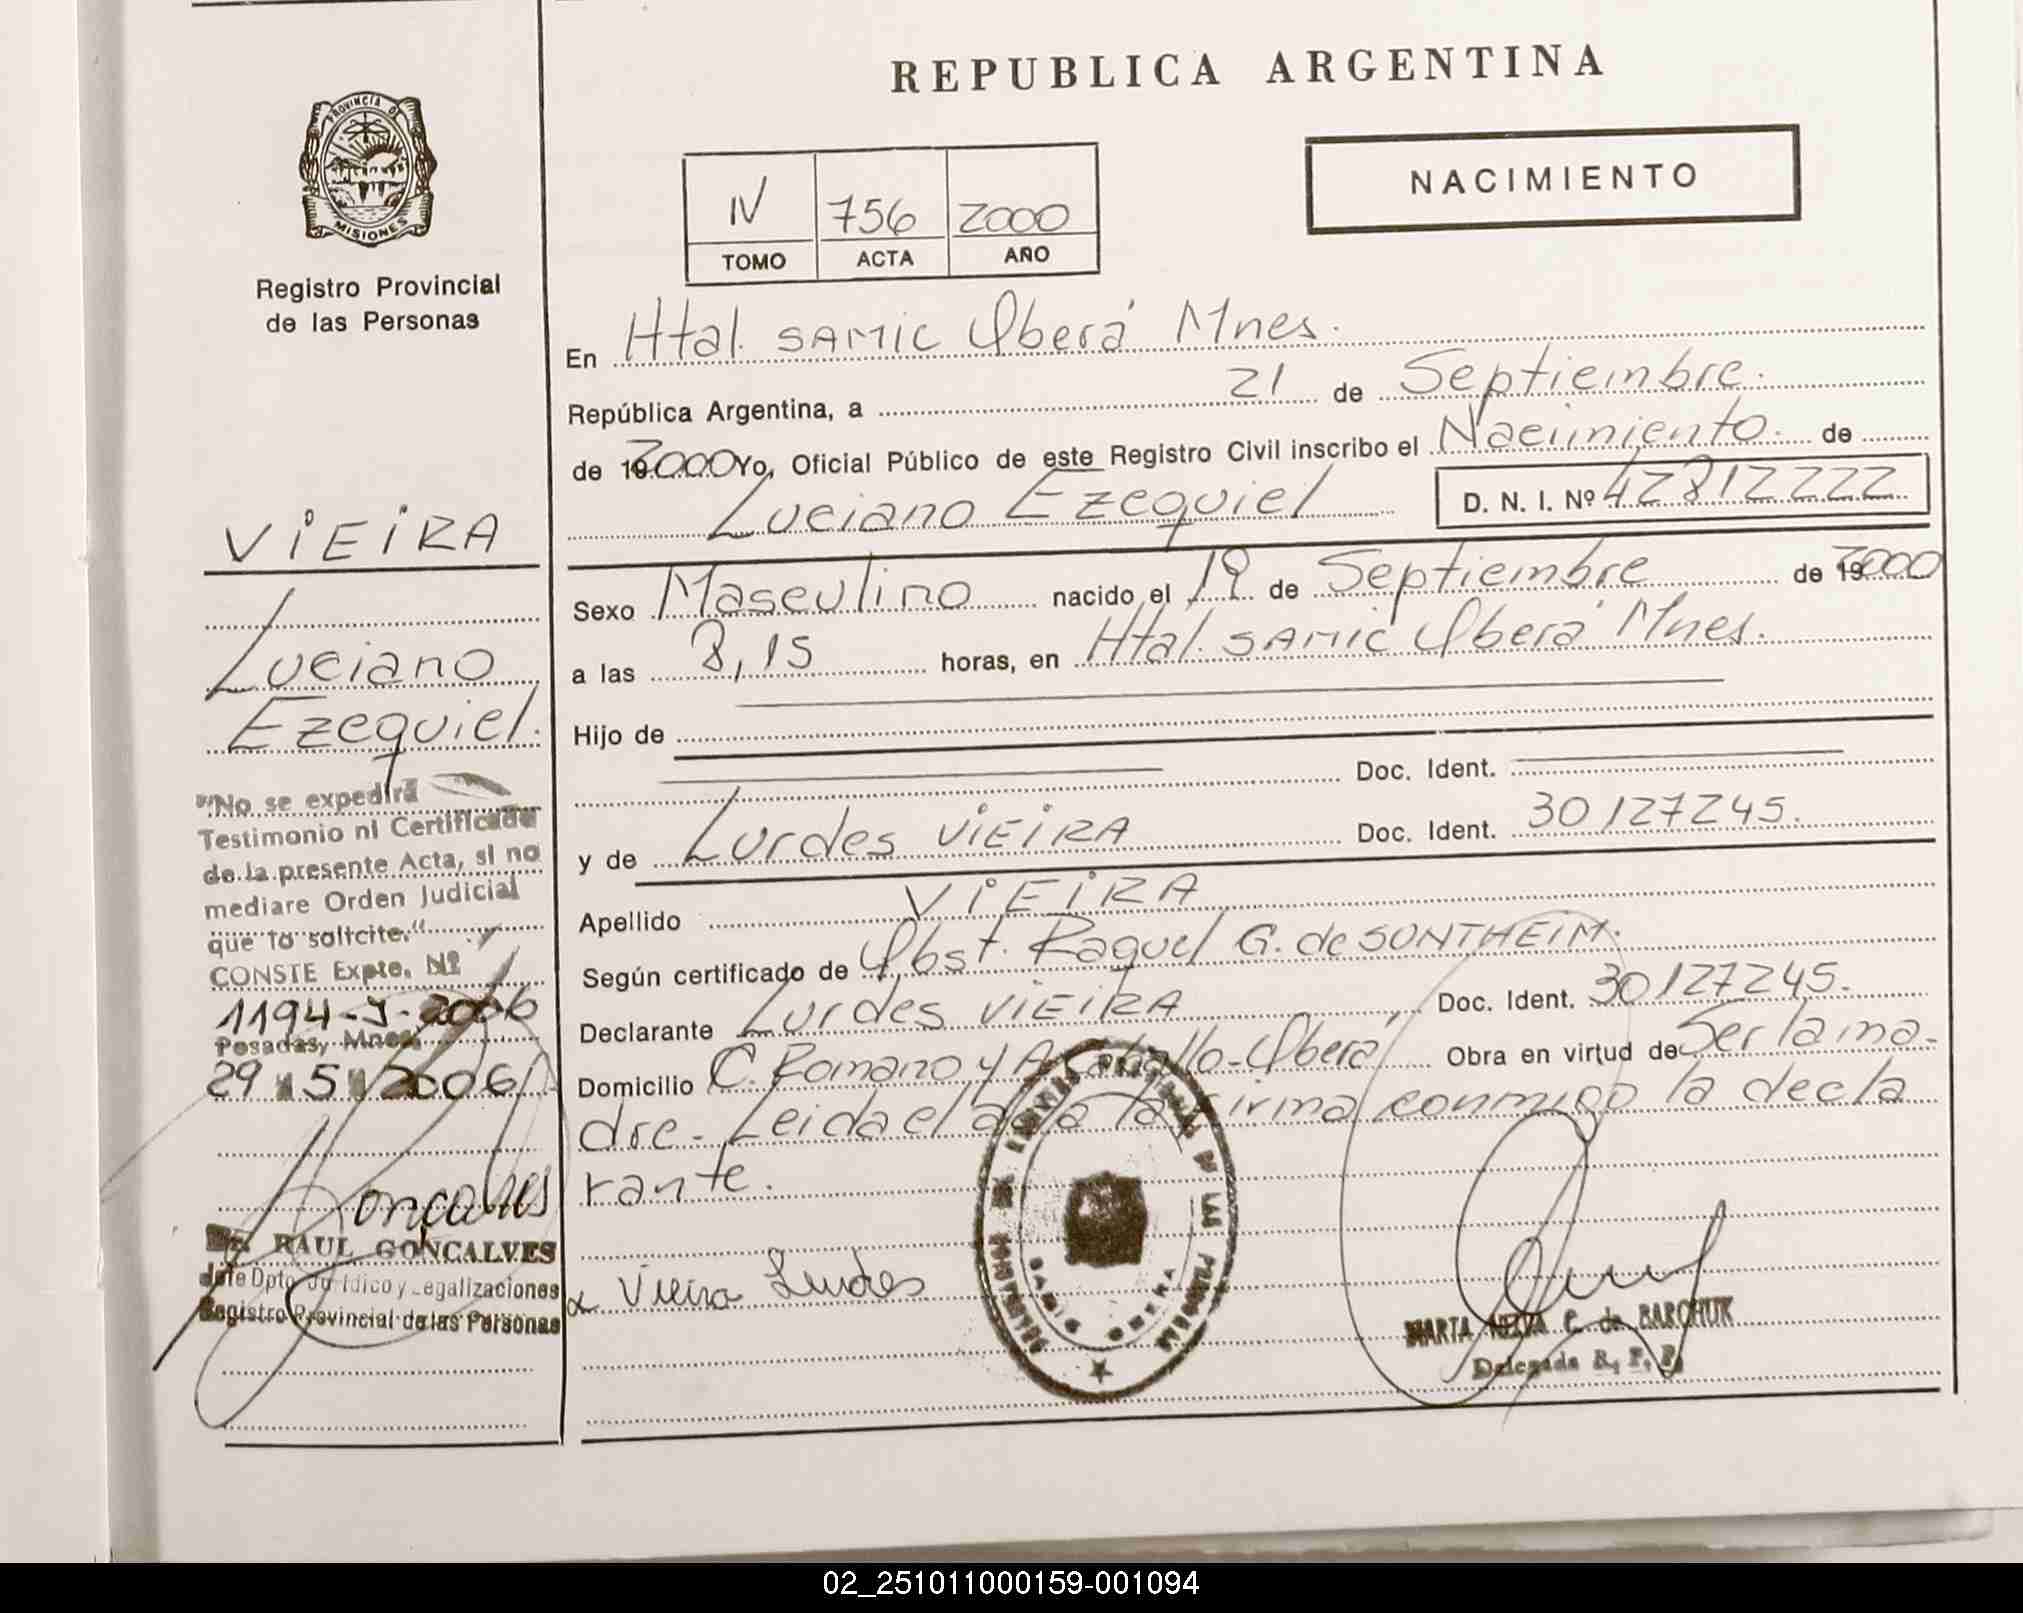 REPUBLICA ARGENTINA
PROVINCIA DE
MISIONES
Registro Provincial
de las Personas
NACIMIENTO
IV 756 2000
TOMO ACTA AÑO
En Htal. SAMIC Oberá Mnes.
República Argentina, a 21 de Septiembre.
de 192000 Yo, Oficial Público de este Registro Civil inscribo el Nacimiento. de
Luciano Ezequiel D. N. I. Nº 42812222
Sexo Masculino nacido el 19 de Septiembre de 192000
a las 8,15 horas, en Htal. SAMIC Oberá Mnes.
Hijo de
Doc. Ident.
y de Lurdes VIEIRA Doc. Ident. 30127245.
Apellido VIEIRA
Según certificado de Obst. Raquel G. de SONTHEIM.
Declarante Lurdes VIEIRA Doc. Ident. 30127245.
Domicilio C. Romano y A. Oberá Obra en virtud de Ser la ma-
dre. Leida el acta la firma conmigo la decla
rante.
Vieira Lurdes
MARTA C. de BARCHUK
Delegada R. P. P.
VIEIRA
Luciano
Ezequiel.
"No se expedirá
Testimonio ni Certificado
de la presente Acta, si no
mediare Orden Judicial
que lo solicite."
CONSTE Expte. Nº
1194-J-2006
Posadas, Mnes.
29 5 2006
Gonçalves
RAUL GONÇALVES
Jefe Dpto. Jurídico y Legalizaciones
Registro Provincial de las Personas
DE LAS PERSONAS
SAMIC OBERA
02_251011000159-001094